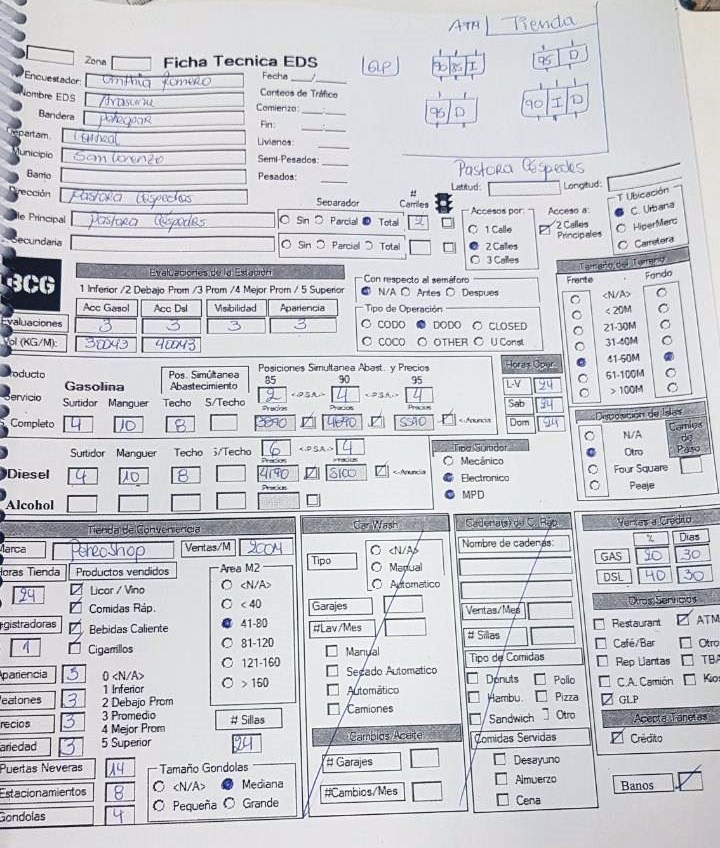 ATM | Tienda
GLP
90 95 I
95 D
95 D
90 I D
Zona
Ficha Tecnica EDS
Encuestador: Cinthia Romero
Fecha __/__
Nombre EDS
Conteos de Tráfico
Bandera Petropar
Comienzo: __:__
Departam. Central
Fin: __:__
Municipio San Lorenzo
Livianos:
Barrio
Semi-Pesados:
Pesados:
Pastora Céspedes
Latitud: Longitud:
Dirección Pastora Céspedes
Separador # Carriles
Calle Principal Pastora Céspedes
Sin Parcial Total 2
Secundaria
Sin Parcial Total
Accesos por:
1 Calle
2 Calles
3 Calles
Acceso a:
2 Calles Principales
T Ubicación
C. Urbana
HiperMerc
Carretera
BCG
Evaluaciones de la Estación
1 Inferior /2 Debajo Prom /3 Prom /4 Mejor Prom / 5 Superior
Acc Gasol Acc Dsl Visibilidad Apariencia
Evaluaciones 3 3 3 3
Vol (KG/M):
Con respecto al semáforo
N/A Antes Despues
Tipo de Operación
CODO DODO CLOSED
COCO OTHER U Const
Tamaño del Terreno
Frente Fondo
<N/A>
< 20M
21-30M
31-40M
41-60M
61-100M
> 100M
Producto
Gasolina
Pos. Simúltanea Abastecimiento
Posiciones Simultanea Abast. y Precios
85 90 95
Servicio Surtidor Manguer Techo S/Techo
2 <-P.S.A-> 4 <-P.S.A-> 4
Precios Precios Precios
Completo 4 10 8
3890 4690 5590 <-Anuncia
Horas Oper.
L-V 24
Sab 24
Dom 24
Surtidor Manguer Techo S/Techo
6 <-P.S.A-> 4
Precios Precios
Diesel 4 10 8
4190 5100 <-Anuncia
Precios
Alcohol
Tipo Surtidor
Mecánico
Electronico
MPD
Disposición de Islas
N/A
Otro
Four Square
Peaje
Carriles de Paso
Tienda de Conveniencia
Marca PetroShop Ventas/M 200M
Horas Tienda 24
Productos vendidos
Licor / Vino
Comidas Ráp.
Bebidas Caliente
Cigarrillos
Registradoras 1
Area M2
<N/A>
< 40
41-80
81-120
121-160
> 160
Apariencia 3
Peatones 3
Precios 3
Variedad 3
0 <N/A>
1 Inferior
2 Debajo Prom
3 Promedio
4 Mejor Prom
5 Superior
# Sillas
24
Puertas Neveras 14
Estacionamientos 8
Gondolas 4
Tamaño Gondolas
<N/A> Mediana
Pequeña Grande
Car Wash
Tipo
<N/A>
Manual
Automatico
Garajes
#Lav/Mes
Manual
Secado Automatico
Automático
Camiones
Cambios Aceite
# Garajes
#Cambios/Mes
Cadena(s) de C. Rap.
Nombre de cadenas:
Ventas/Mes
# Sillas
Tipo de Comidas
Donuts Pollo
Hambu. Pizza
Sandwich Otro
Comidas Servidas
Desayuno
Almuerzo
Cena
Ventas a Crédito
% Dias
GAS 20 30
DSL 40 30
Otros Servicios
Restaurant ATM
Café/Bar Otro
Rep Llantas TBA
C.A. Camión Kios
GLP
Acepta Tarjetas
Crédito
Banos